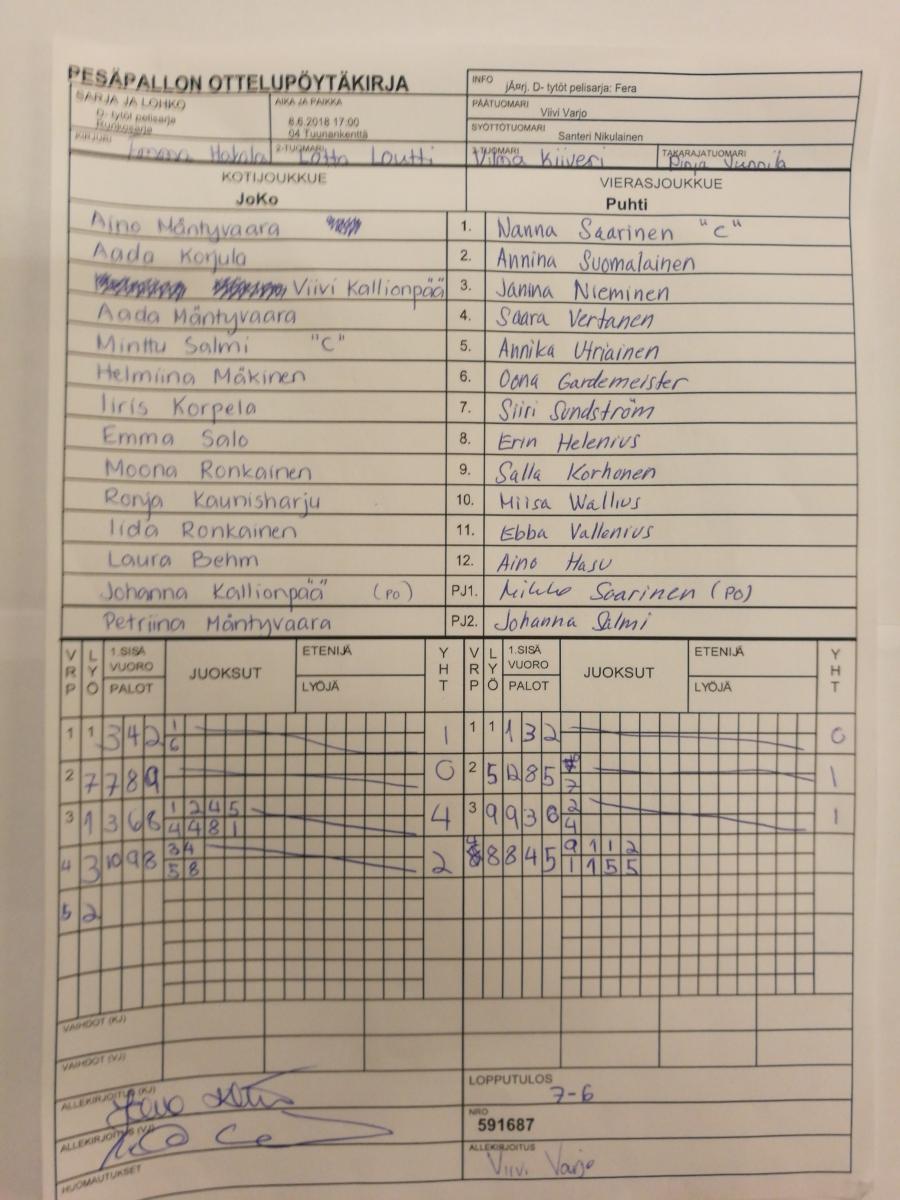 PESÄPALLON OTTELUPÖYTÄKIRJA
INFO
jÃ¤rj. D- tytöt pelisarja: Fera
SARJA JA LOHKO
D- tytöt pelisarja
Runkosarja
AIKA JA PAIKKA
8.6.2018 17:00
04 Tuunankenttä
PÄÄTUOMARI
Viivi Varjo
SYÖTTÖTUOMARI
Santeri Nikulainen
KIRJURI
Emma Hakala
2-TUOMARI
Lotta Loutti
3-TUOMARI
Vilma Kiiveri
TAKARAJATUOMARI
Pinja Vunnila
KOTIJOUKKUE
JoKo
VIERASJOUKKUE
Puhti
Aino Mäntyvaara 1. Nanna Saarinen "C"
Aada Korjula 2. Annina Suomalainen
Viivi Kallionpää 3. Janina Nieminen
Aada Mäntyvaara 4. Saara Vertanen
Minttu Salmi "C" 5. Annika Utriainen
Helmiina Mäkinen 6. Oona Gardemeister
Iiris Korpela 7. Siiri Sundström
Emma Salo 8. Erin Helenius
Moona Ronkainen 9. Salla Korhonen
Ronja Kaunisharju 10. Miisa Wallius
Iida Ronkainen 11. Ebba Vallenius
Laura Behm 12. Aino Hasu
Johanna Kallionpää (PO) PJ1. Mikko Saarinen (PO)
Petriina Mäntyvaara PJ2. Johanna Salmi
VRP LYÖ 1.SISÄ VUORO PALOT JUOKSUT ETENIJÄ LYÖJÄ YHT VRP LYÖ 1.SISÄ VUORO PALOT JUOKSUT ETENIJÄ LYÖJÄ YHT
1 1 3 4 2 1 1 1 1 1 3 2 0
6
2 7 7 8 9 0 2 5 12 8 5 1
7
3 1 3 6 8 1 2 4 5 4 3 9 9 3 6 2 1
4 4 8 1 4
4 3 10 9 8 3 4 2 4 8 8 4 5 9 1 1 2
5 8 1 1 5 5
5 2
VAIHDOT (KJ)
VAIHDOT (VJ)
ALLEKIRJOITUS (KJ)
LOPPUTULOS
7-6
ALLEKIRJOITUS (VJ)
NRO
591687
HUOMAUTUKSET
ALLEKIRJOITUS
Viivi Varjo